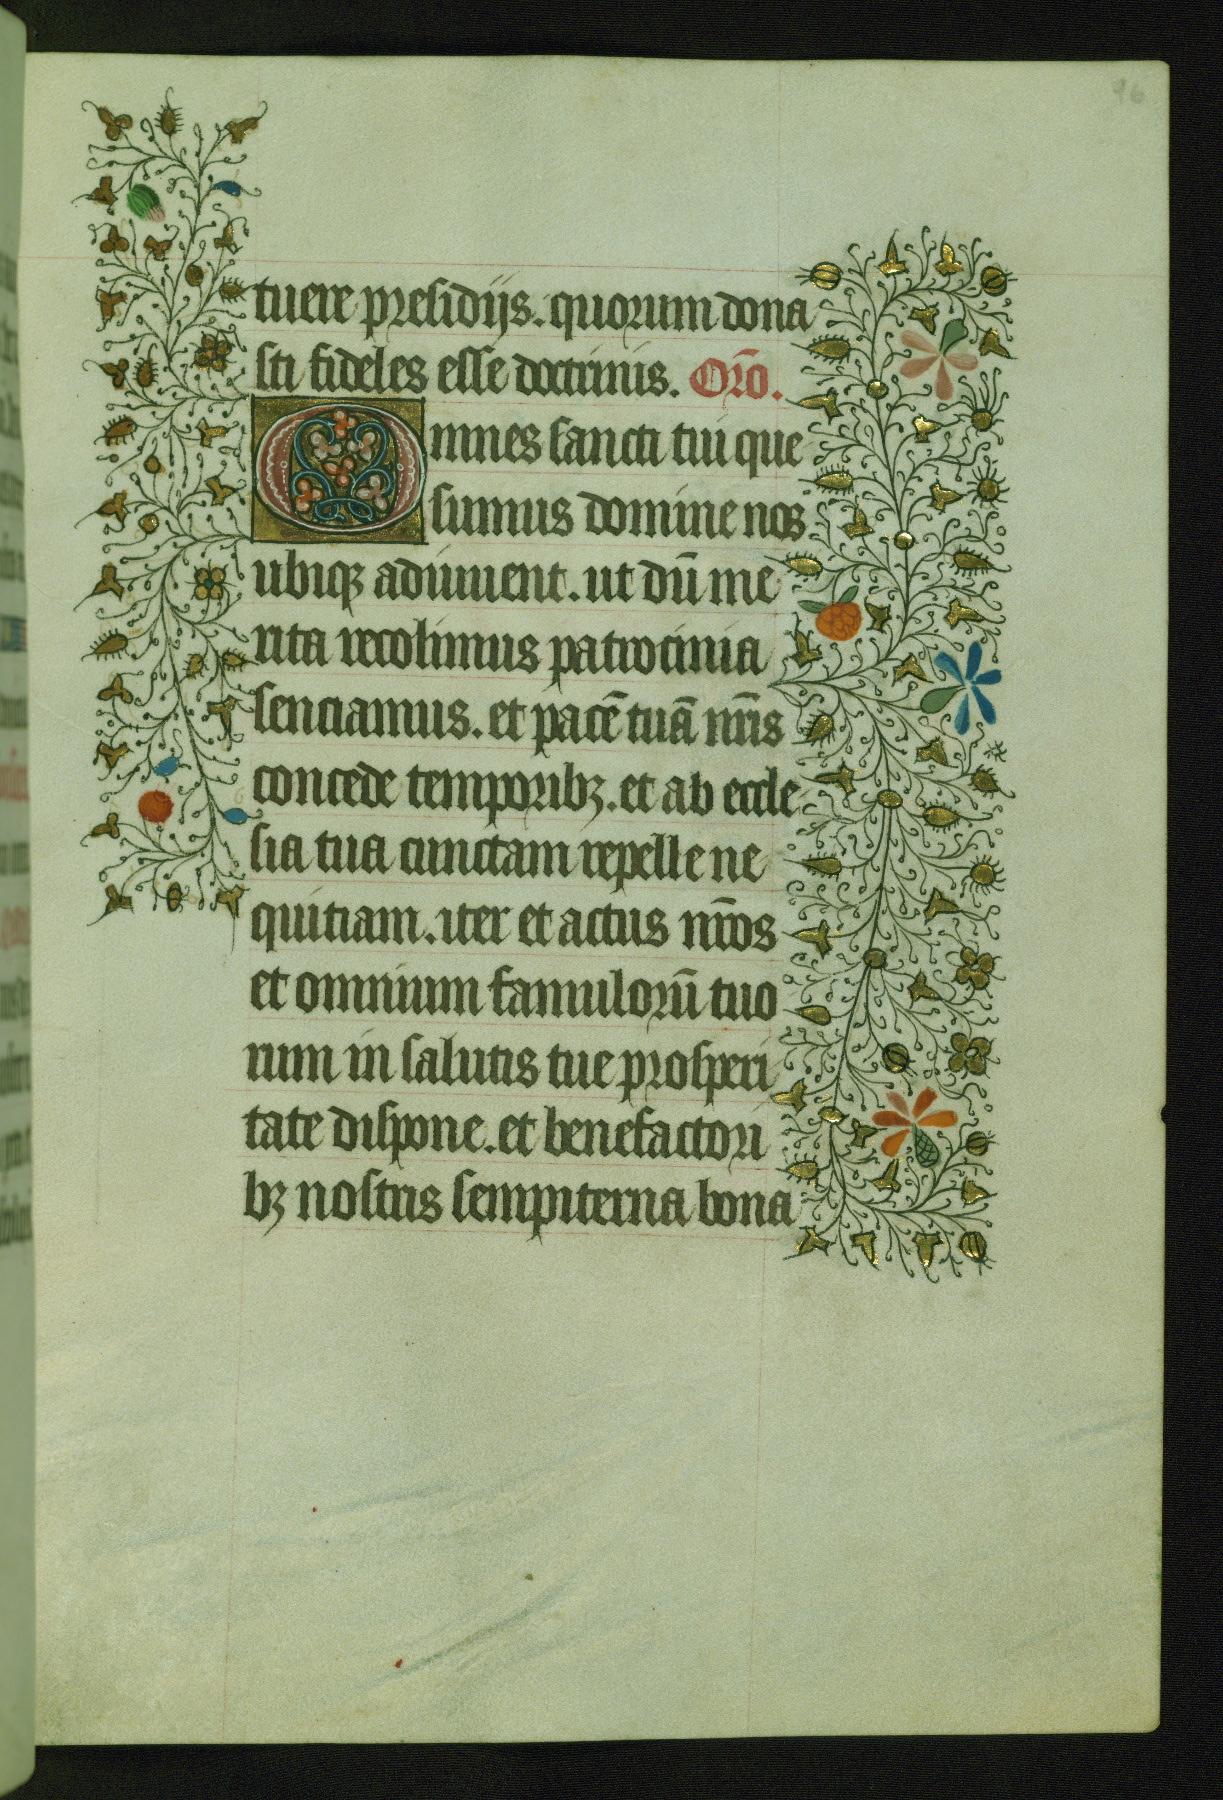 96
tuere presidijs. quorum dona
sti fideles esse doctrinis. Orō.
Omnes sancti tui que
sumus domine nos
ubiqꝫ adiuuent. ut dū me
rita recolimus patrocinia
senciamus. et pacē tuā nr̄is
concede temporibꝫ. et ab eccle
sia tua cunctam repelle ne
quitiam. iter et actus nr̄os
et omnium famulorū tuo
rum in salutis tue prosperi
tate dispone. et benefactori
bꝫ nostris sempiterna bona